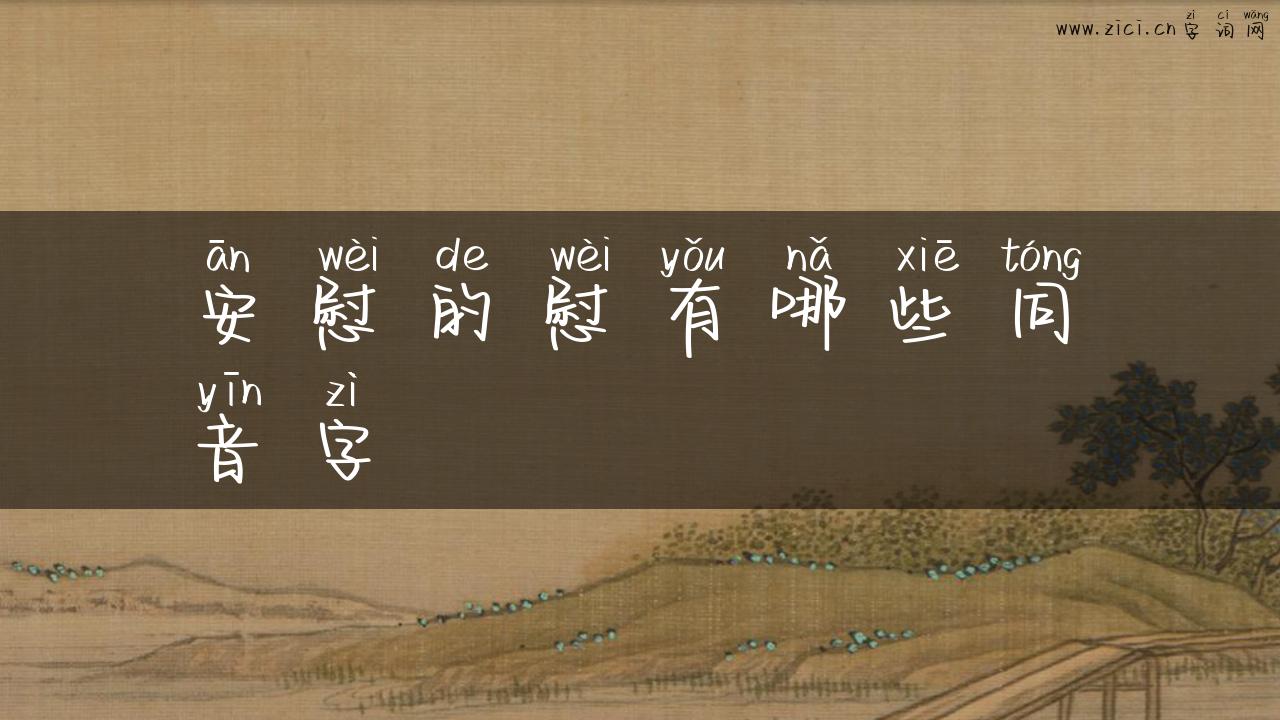 zì cí wǎng
www.zici.cn 字词网
ān wèi de wèi yǒu nǎ xiē tóng
安慰的慰有哪些同
yīn zì
音字